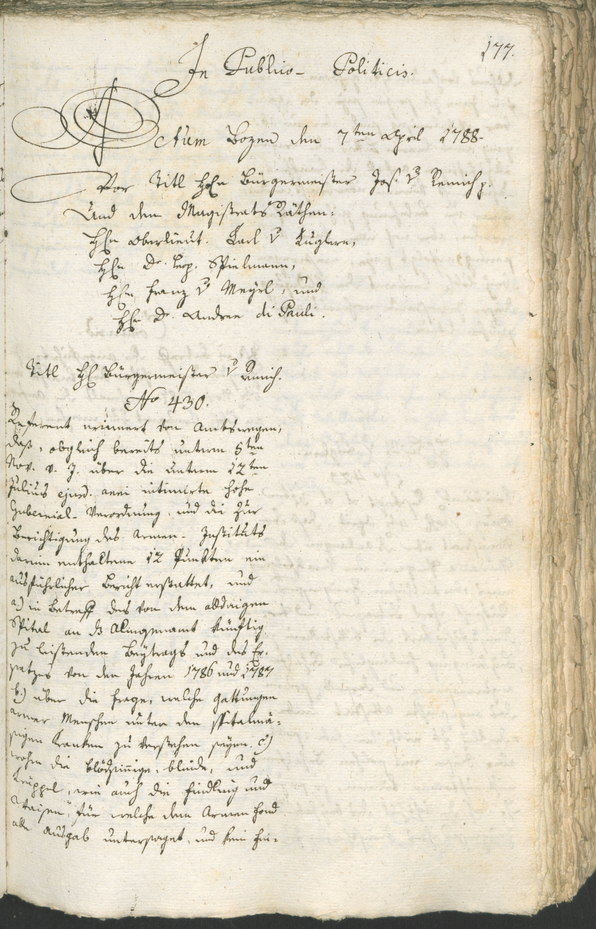 177.
In Publico- Politicis.
Actum Bozen den 7ten April 1788.
Vor Titl Hhn Bürgermeister Jos. v Remich p.
Und den Magistrats Räthen:
Hhn Oberlieut. Carl v Kuglern,
Hhn Dr. Leop. Spielmann,
Hhn Franz v Mayrl, und
Hhn Dr. Andree di Pauli.
Titl Hh Bürgermeister v Remich.
No 430.
Referent erinnert von Amtswegen,
daß, obgleich bereits unterm 5ten
Nov. v. J. über die unterm 12ten
Julius ejusd. anni intimirte hohe
Gubernial-Verordnung, und die zur
Berichtigung des Armen-Instituts
darinn enthaltene 12 Punkten ein
ausführlicher Bericht erstattet, und
a) in Betreff des von dem alldaigen
Spital an das Almosenamt künftig
zu leistenden Beytrags und des Er-
satzes von den Jahren 1786 und 1787
b.) über die Frage, welche Gattungen
armer Menschen unter den spitalmä-
ßigen Kranken zu verstehen seyen. c)
wohin die blödsinnige, blinde, und
Krüppel, wie auch die Findling und
Waisen, für welche dem Armen Fond
alle Ausgab untersaget, und kein hin-